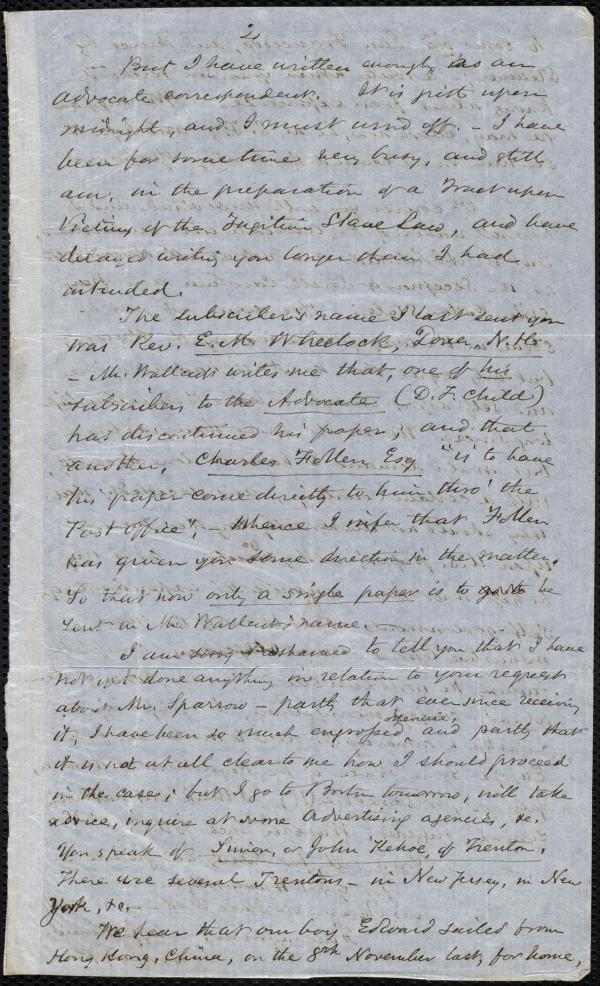 2
— But I have written enough, as an
Advocate correspondent. It is just upon
midnight and I must wind off. — I have
been for some time very busy, and still
am, in the preparation of a Tract upon
Victims of the Fugitive Slave Law, and have
delayed writing you longer than I had
intended.
The subscriber's name I last sent you
was Rev. E. M. Wheelock, Dover, N. H.
— Mr. Wallcut writes me that, one of his
subscribers to the Advocate (D. L. Child)
has discontinued his paper; and that
another, Charles Follen Esq. "is to have
his paper come directly to him thro' the
Post office", — Whence I infer that Follen
has given you some direction in the matter.
So that now only a single paper is to be
sent in Mr. Wallcut's name.
I am ashamed to tell you that I have
not yet done anything in relation to your request
about Mr. Sparrow — partly that ever since receiving
it, I have been so much engrossed and partly that
it is not at all clear to me how I should proceed
in the case; but I go to Boston tomorrow, will take
advice, inquire at some Advertising agencies, &c.
You speak of Simon, or John Kehoe, of Trenton.
There are several Trentons — in New Jersey, in New
York, &c.
We hear that our boy Edward sailed from
Hong Kong, China, on the 8th November last, for home,